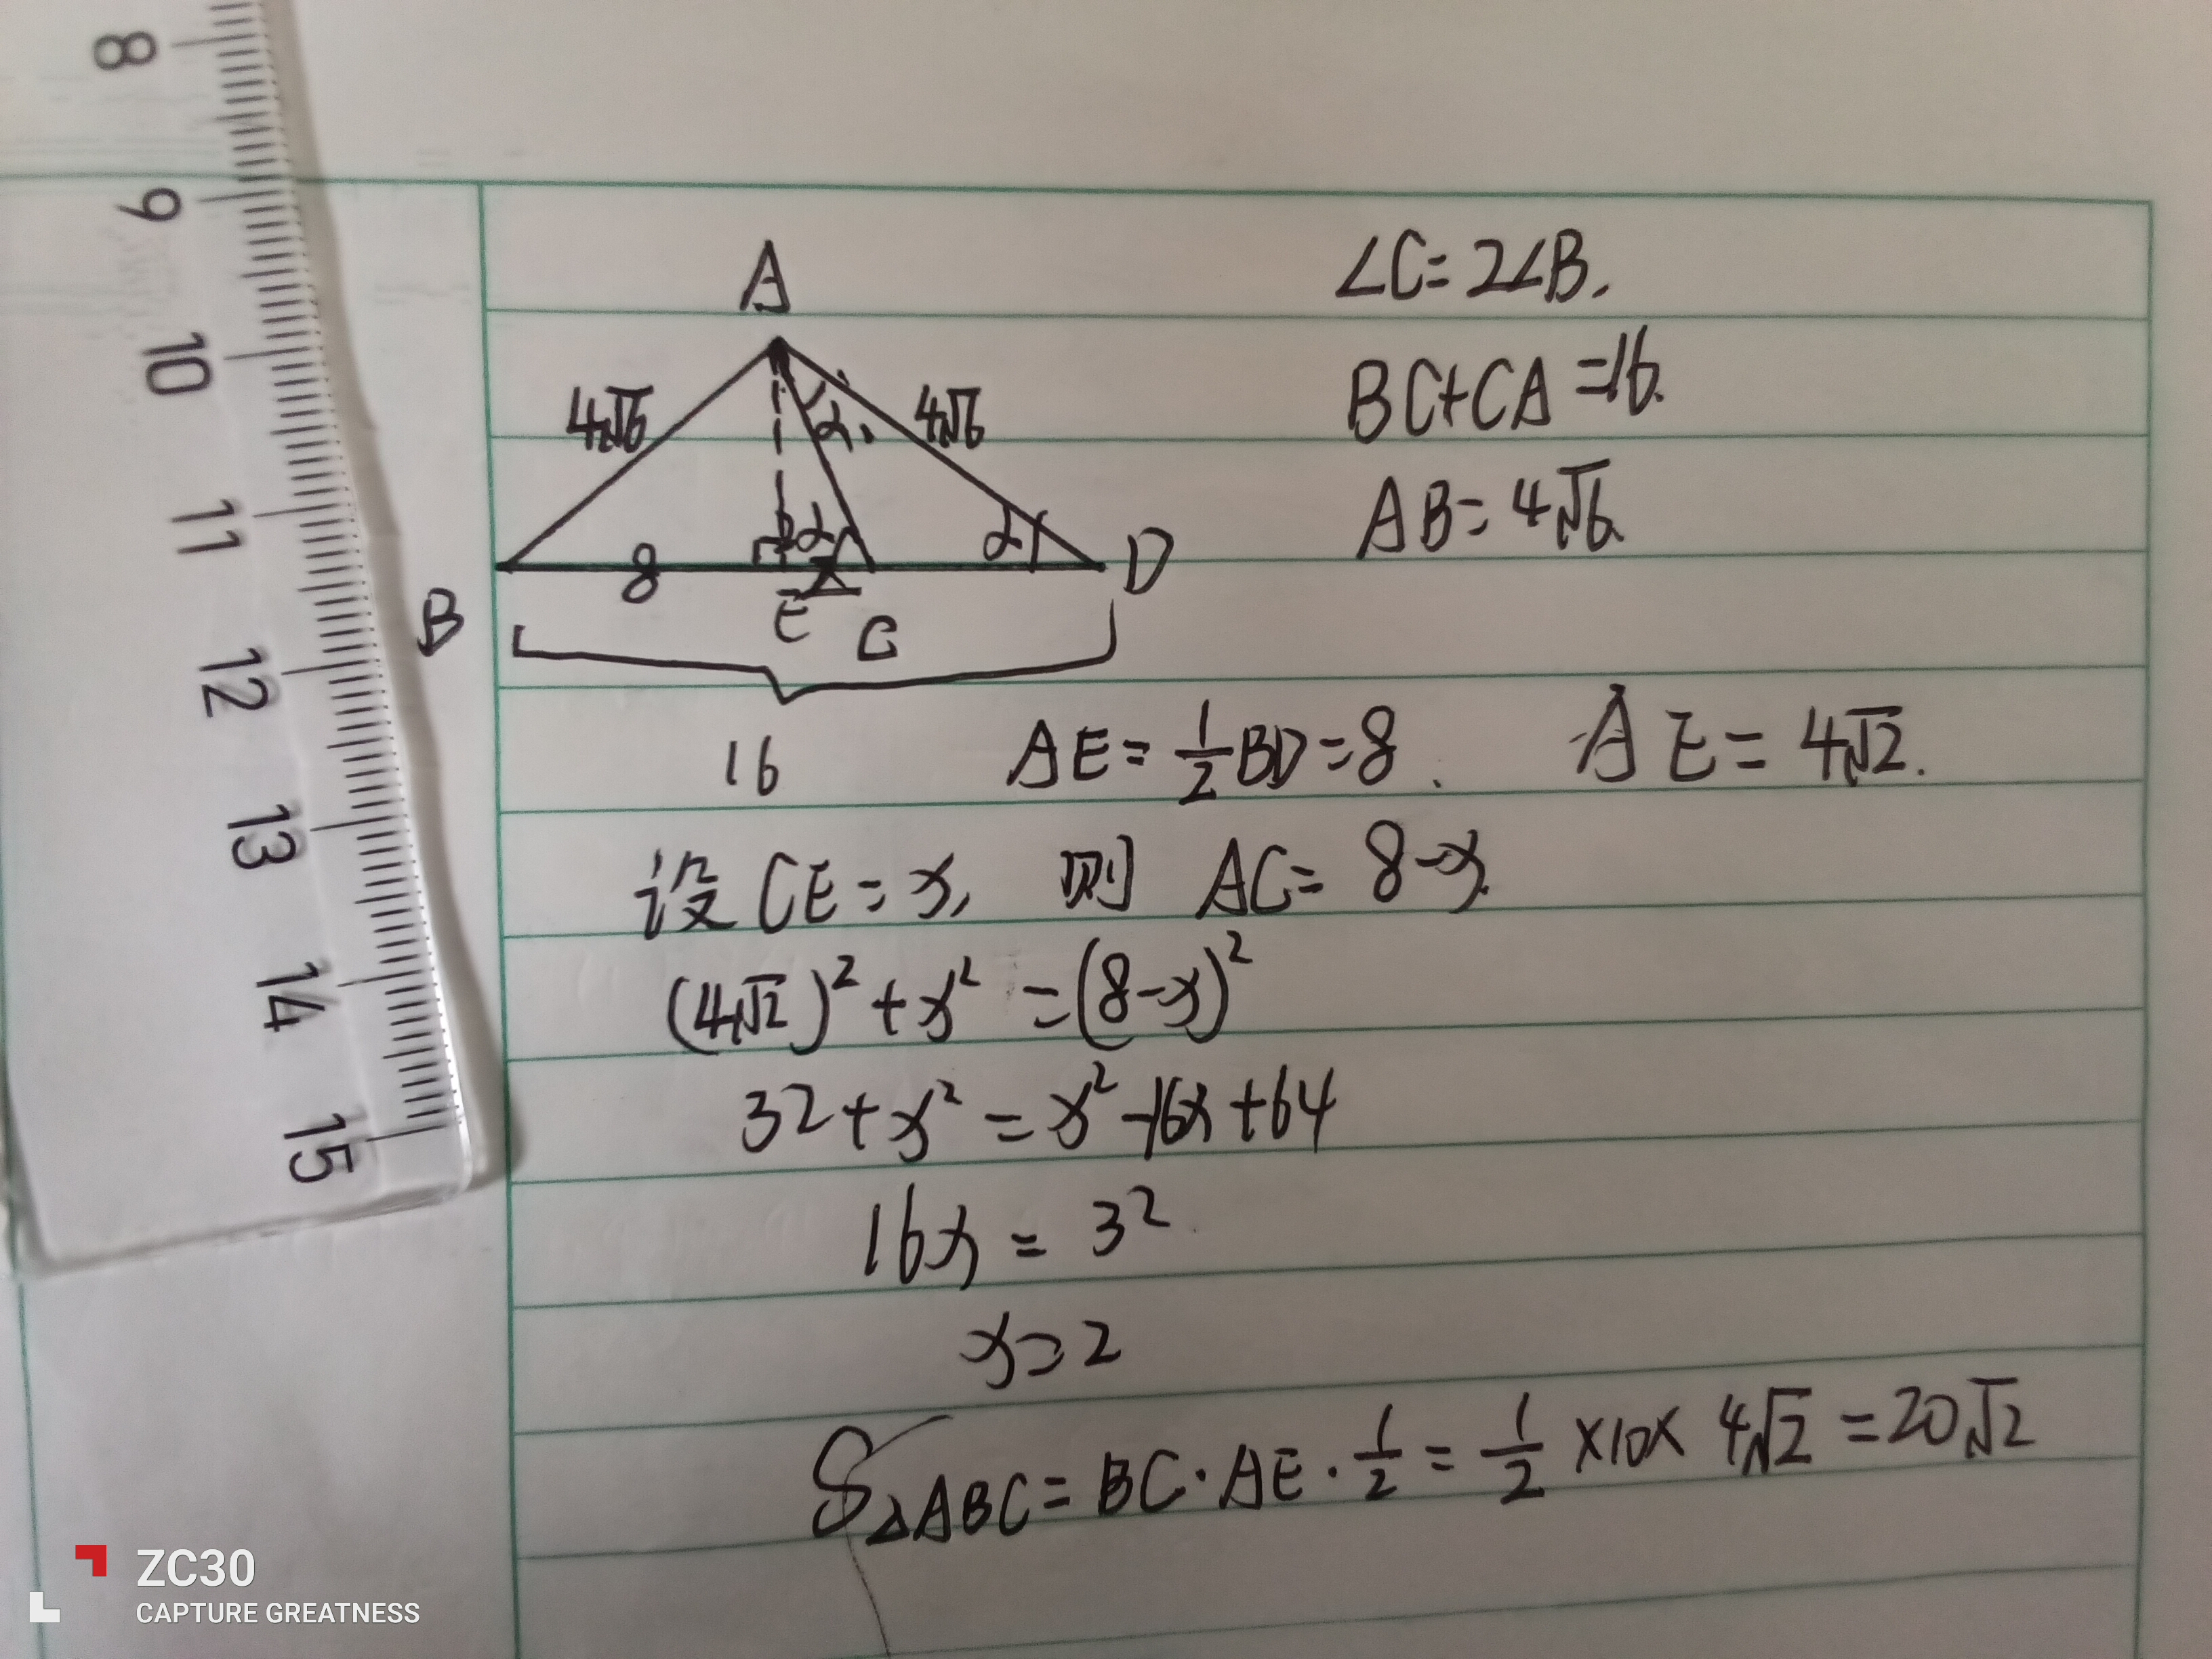 8
9
10
11
12
13
14
15
A
4√6
4√6
α
2α
α
8
x
B
E
C
D
16
∠C=2∠B.
BC+CA=16.
AB=4√6.
AE=1/2BD=8. AE=4√2.
设CE=x, 则 AC=8-x.
(4√2)²+x²=(8-x)²
32+x²=x²-16x+64
16x=32
x=2
S△ABC=BC·AE·1/2=1/2×10×4√2=20√2
ZC30
CAPTURE GREATNESS